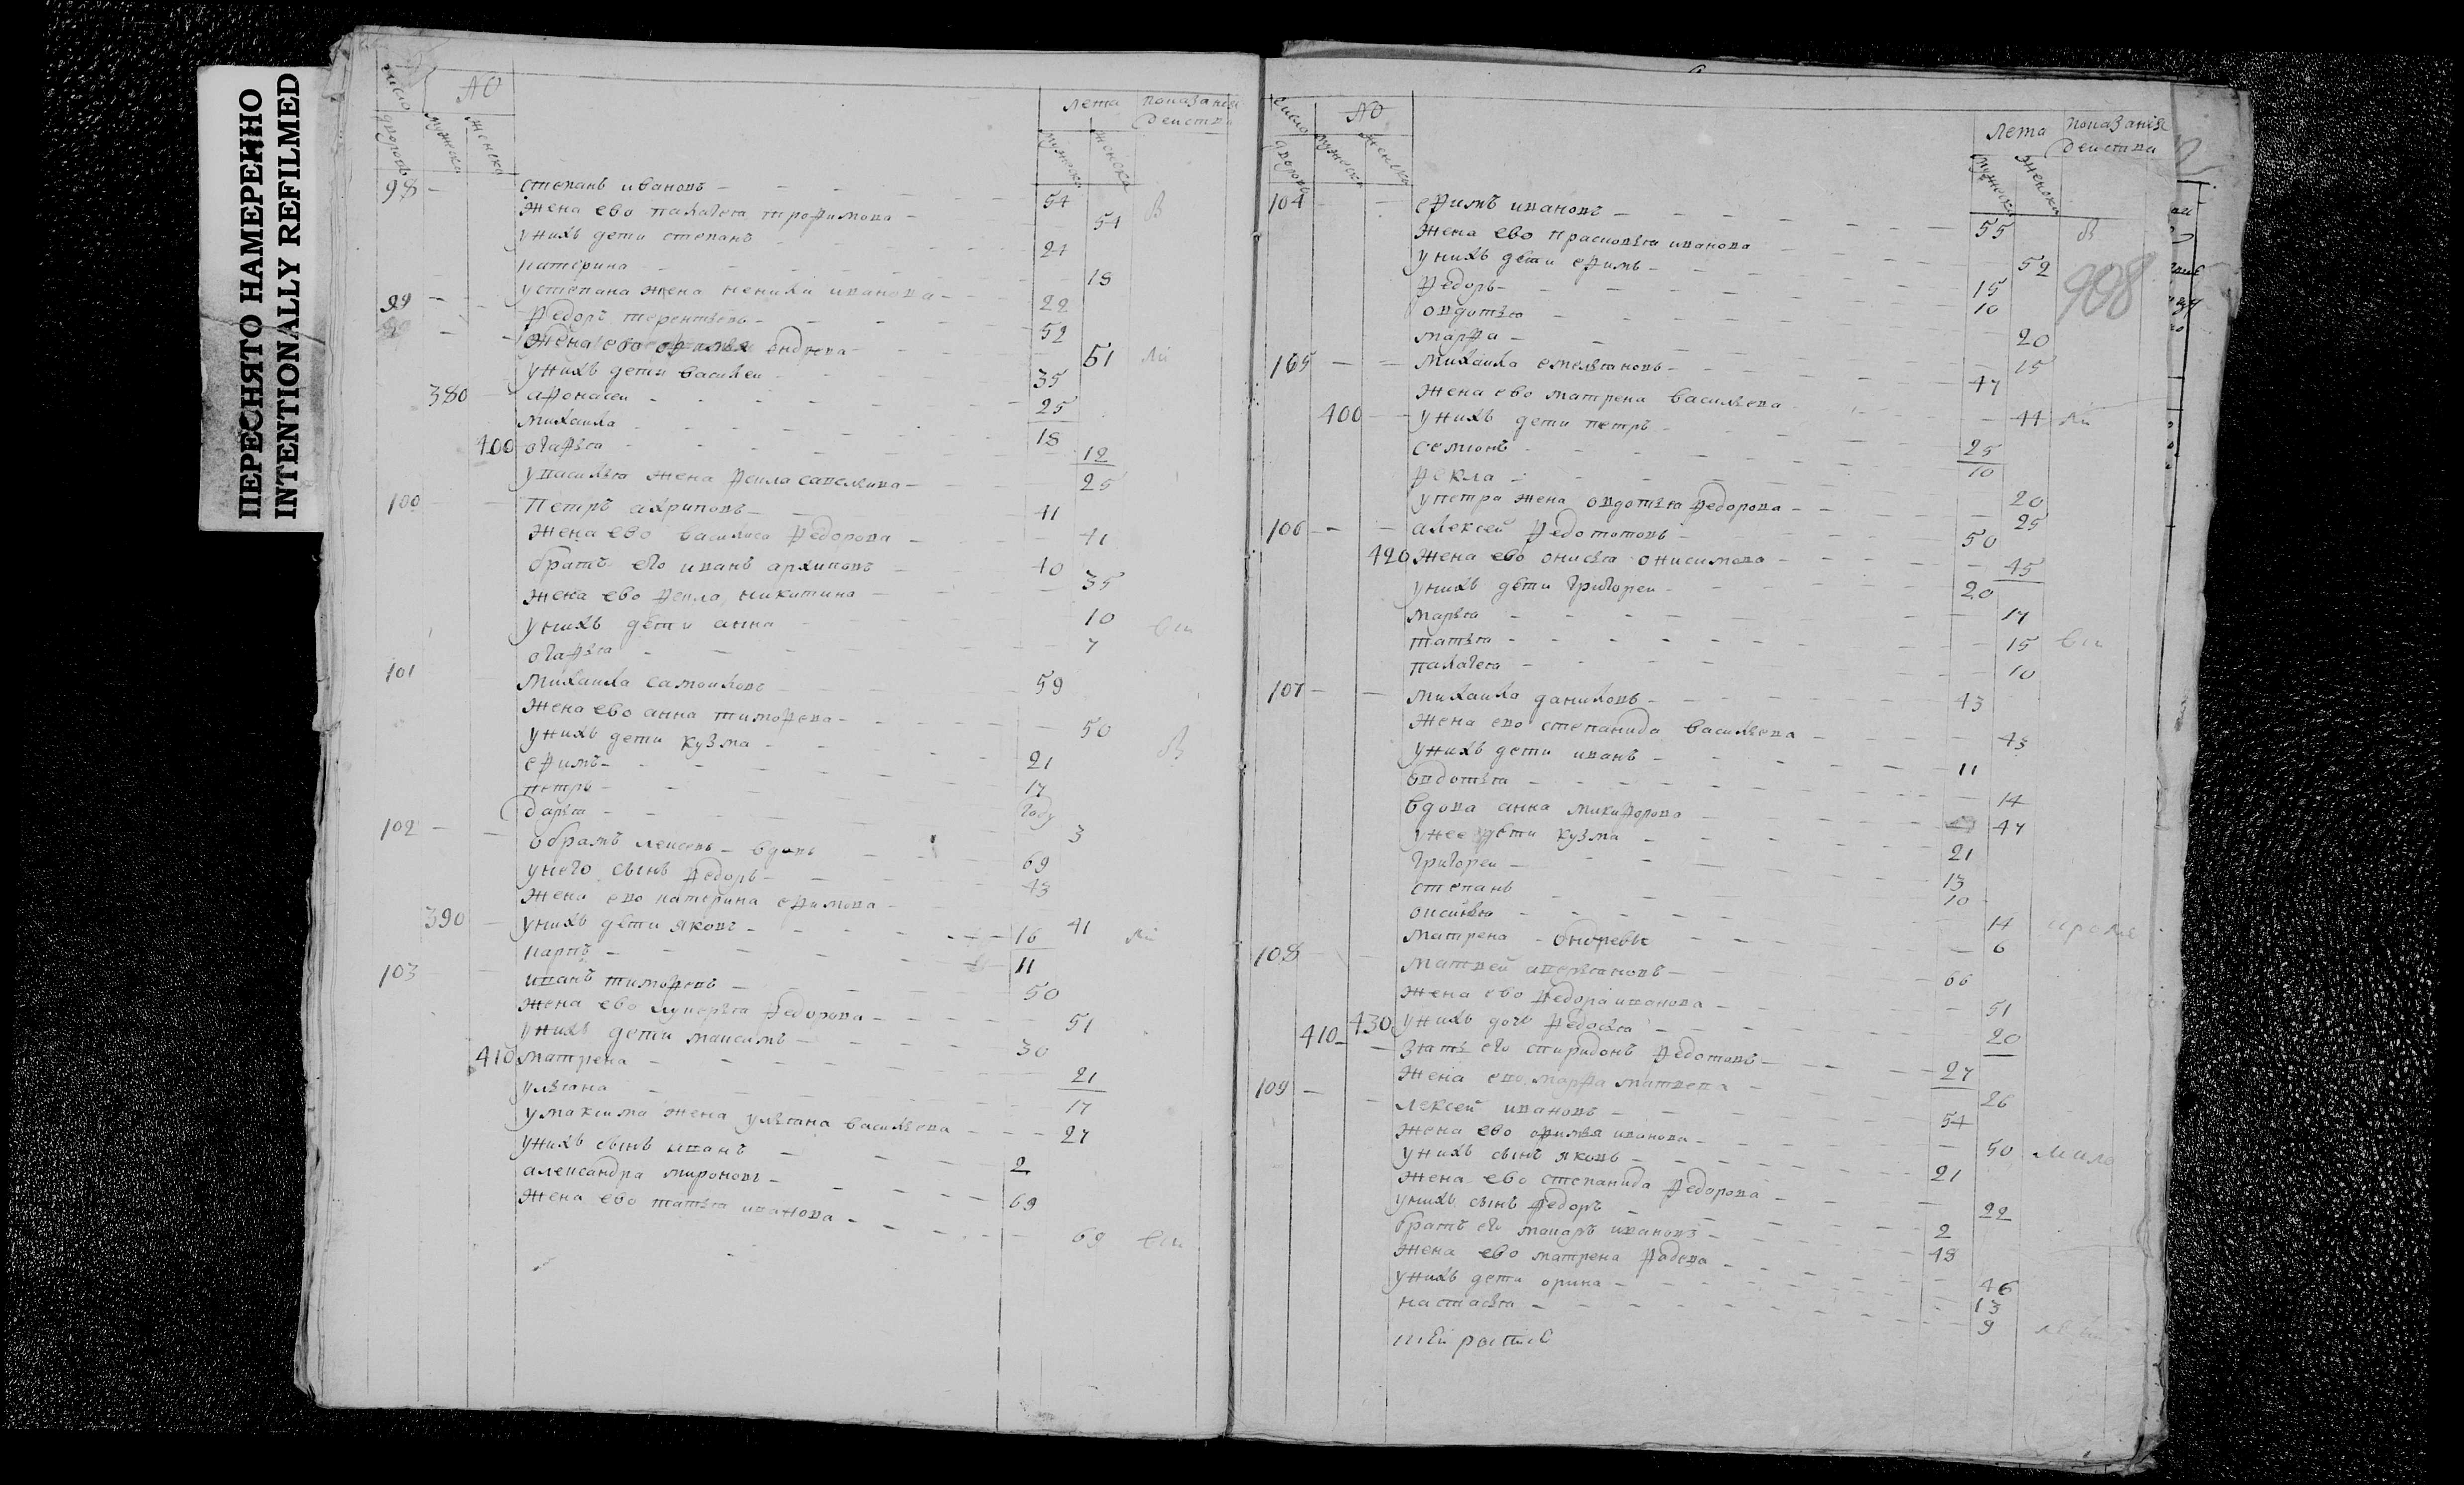 ПЕРЕСНЯТО НАМЕРЕННО
INTENTIONALLY REFILMED
число дворовъ
№
мужеска
женска
лета
показание действа
мужеска
женска
98 степанъ ивановъ 54
жена ево палагея трофимова 54 в
у нихъ дети степанъ 24
катерина 18
у степана жена ивановна 22
99 федоръ терентьевъ 52
жена ево андреева 51
у нихъ дети василеи 35
380 афонасеи 25
михаила 18
400 огафья 12
у василья жена фекла савельива 25
100 Петръ архиповъ 41
жена ево василиса федорова 41
братъ его иванъ архиповъ 40
жена ево фекла никитина 35
у нихъ дети анна 10
огафья 7
101 михаила самоиловъ 59
жена ево анна тимофева 50
у нихъ дети кузма 21
ефимъ 17
петръ году
дарья 3
102 обрамъ вдовъ 69
у него сынъ федоръ 43
жена ево катерина ефимова 41
390 у нихъ дети яковъ 16
карпъ 11
103 иванъ тимофевъ 50
жена ево лукерья федорова 51
у нихъ дети максимъ 30
410 матрена 21
ульяна 17
у максима жена ульяна васильева 27
у нихъ сынъ иванъ 2
александра мироновъ 69
жена ево татья иванова 69
число дворовъ
№
мужеска
женска
лета
показание действа
мужеска
женска
104 ефимъ ивановъ 55 в
жена ево прасковья иванова 52
908
у нихъ дети ефимъ 15
федоръ 10
овдотья 20
марфа 15
105 михаила емельяновъ 47
жена ево матрена васильева 44
400 у нихъ дети петръ 25
семионъ 10
фекла 20
у петра жена овдотья федорова 25
106 алексей федототовъ 50
420 жена ево онисья онисимова 45
у нихъ дети григореи 20
марья 17
татья 15
палагея 10
107 михаила даниловъ 43
жена ево степанида васильева 43
у нихъ дети иванъ 11
овдотья 14
вдова анна микифорова 47
у нее дети кузма 21
григореи 13
степанъ 10
оксинья 14
матрена 6
108 матвей аверьяновъ 66
жена ево федора иванова 51
430 у нихъ дочь федосья 20
410 зять его спиридонъ федотовъ 27
жена ево марфа матвева 26
109 лексей ивановъ 54
жена ево офимья иванова 50
у нихъ сынъ яковъ 21
жена ево степанида федорова 22
у нихъ сынъ федоръ 2
братъ его макаръ ивановъ 48
жена ево матрена фадева 46
у нихъ дети орина 13
настасья 9